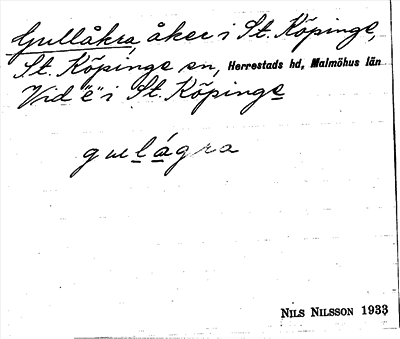 Gullåkra, åker i St. Köpinge,
St. Köpinge sn, Herrestads hd, Malmöhus län
Vid "ë" i St. Köpinge
gulágra
NILS NILSSON 1933